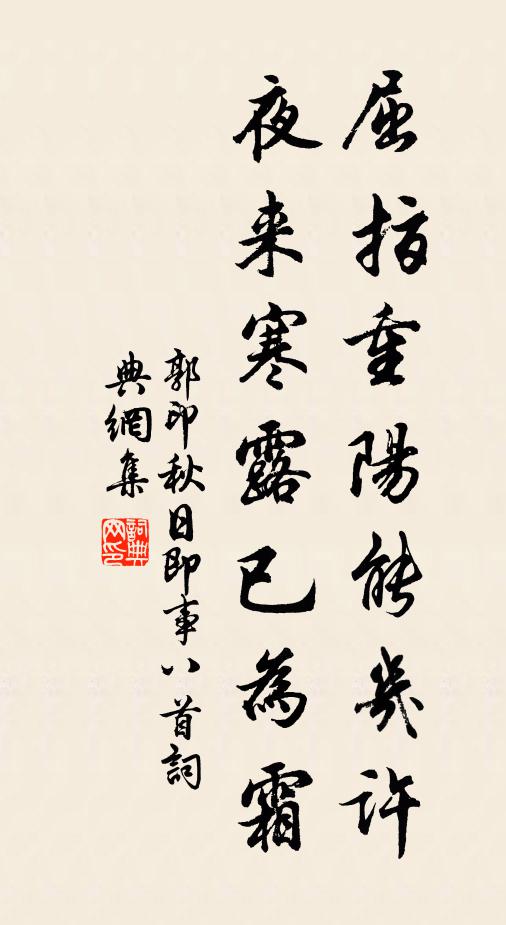 屈指重陽能幾許
夜来寒露已為霜
郭印秋日即事八首詞
典網集
詞典網印